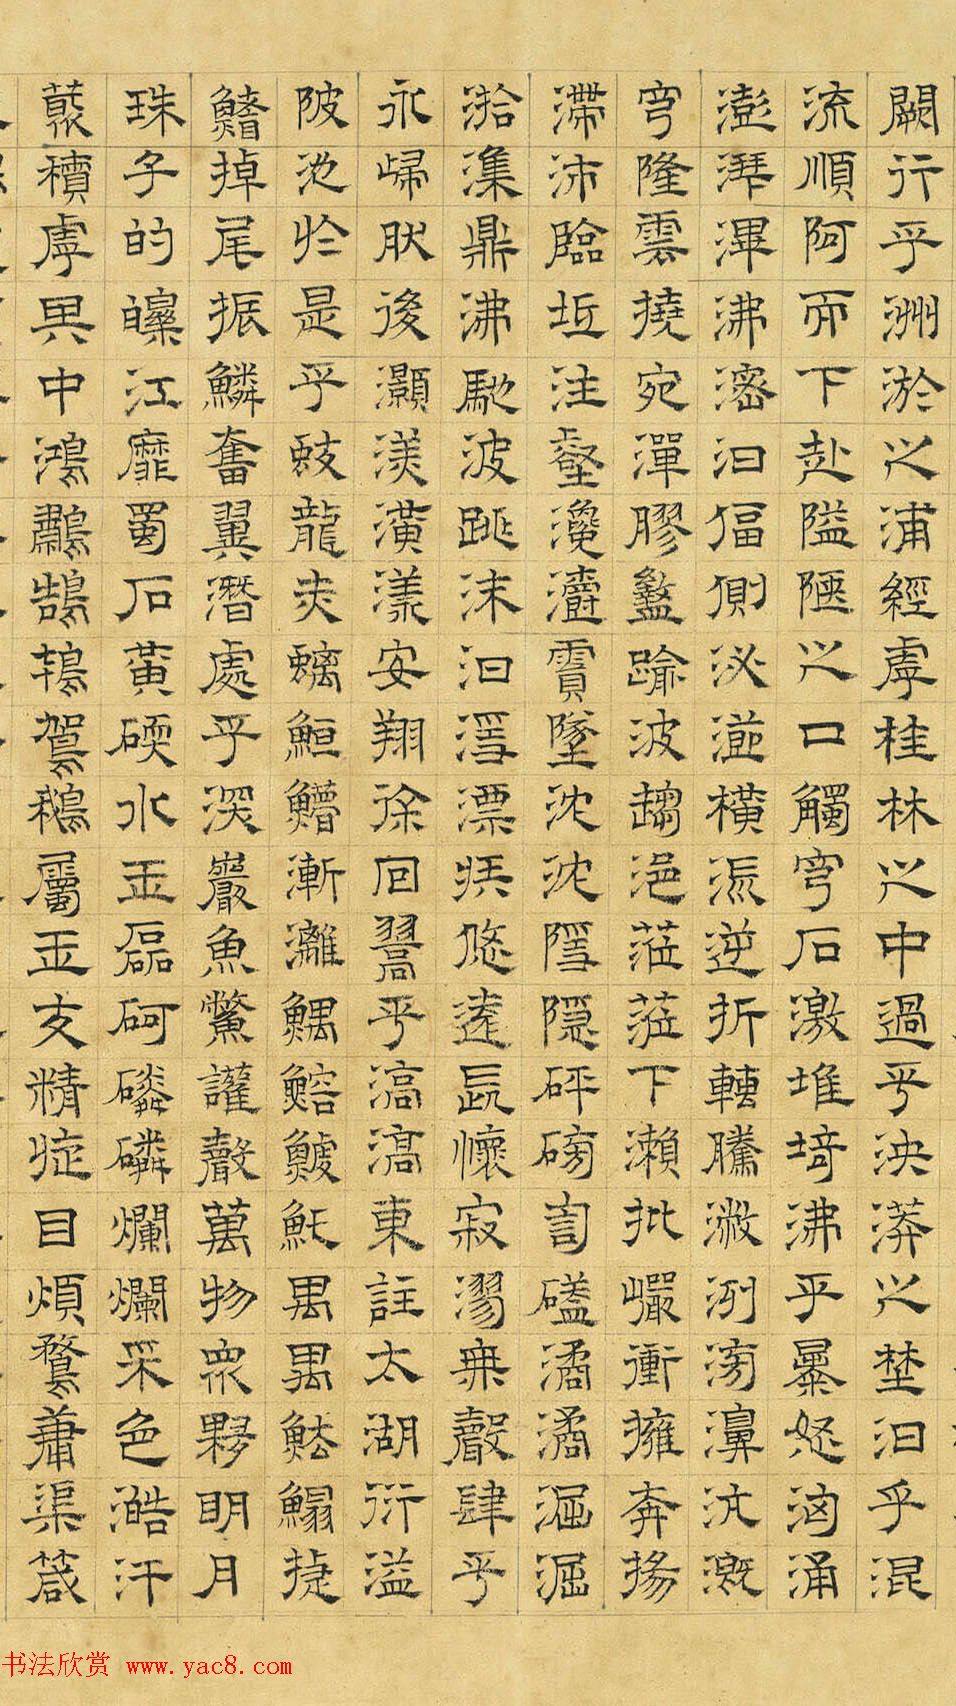 闕行乎洲淤之浦經虖桂林之中過乎泱漭之壄汩乎混
流順阿而下赴隘陿之口觸穹石激堆埼沸乎暴怒洶涌
澎湃滭沸滵汩偪側泌瀄橫流逆折轉騰潎洌滂濞沆溉
穹隆雲橈宛潬膠盭踰波趨浥莅莅下瀨批巖衝擁奔揚
滯沛臨坻注壑瀺灂霣墜沈沈隱隱砰磅訇礚潏潏淈淈
湁潗鼎沸馳波跳沫汩㴔漂疾悠遠長懷寂漻無聲肆乎
永歸然後灝溔潢漾安翔徐回翯乎滈滈東注太湖衍溢
陂池於是乎蛟龍赤螭䱭䲛漸離鰅鰫鰬魠禺禺魼鰨揵
鰭掉尾振鱗奮翼潛處乎深巖魚鱉讙聲萬物眾夥明月
珠子的皪江靡蜀石黃碝水玉磊砢磷磷爛爛采色澔汗
藂積虖其中鴻鷫鵠鴇駕鵝屬玉交精旋目煩鶩庸渠箴
书法欣赏 www.yac8.com